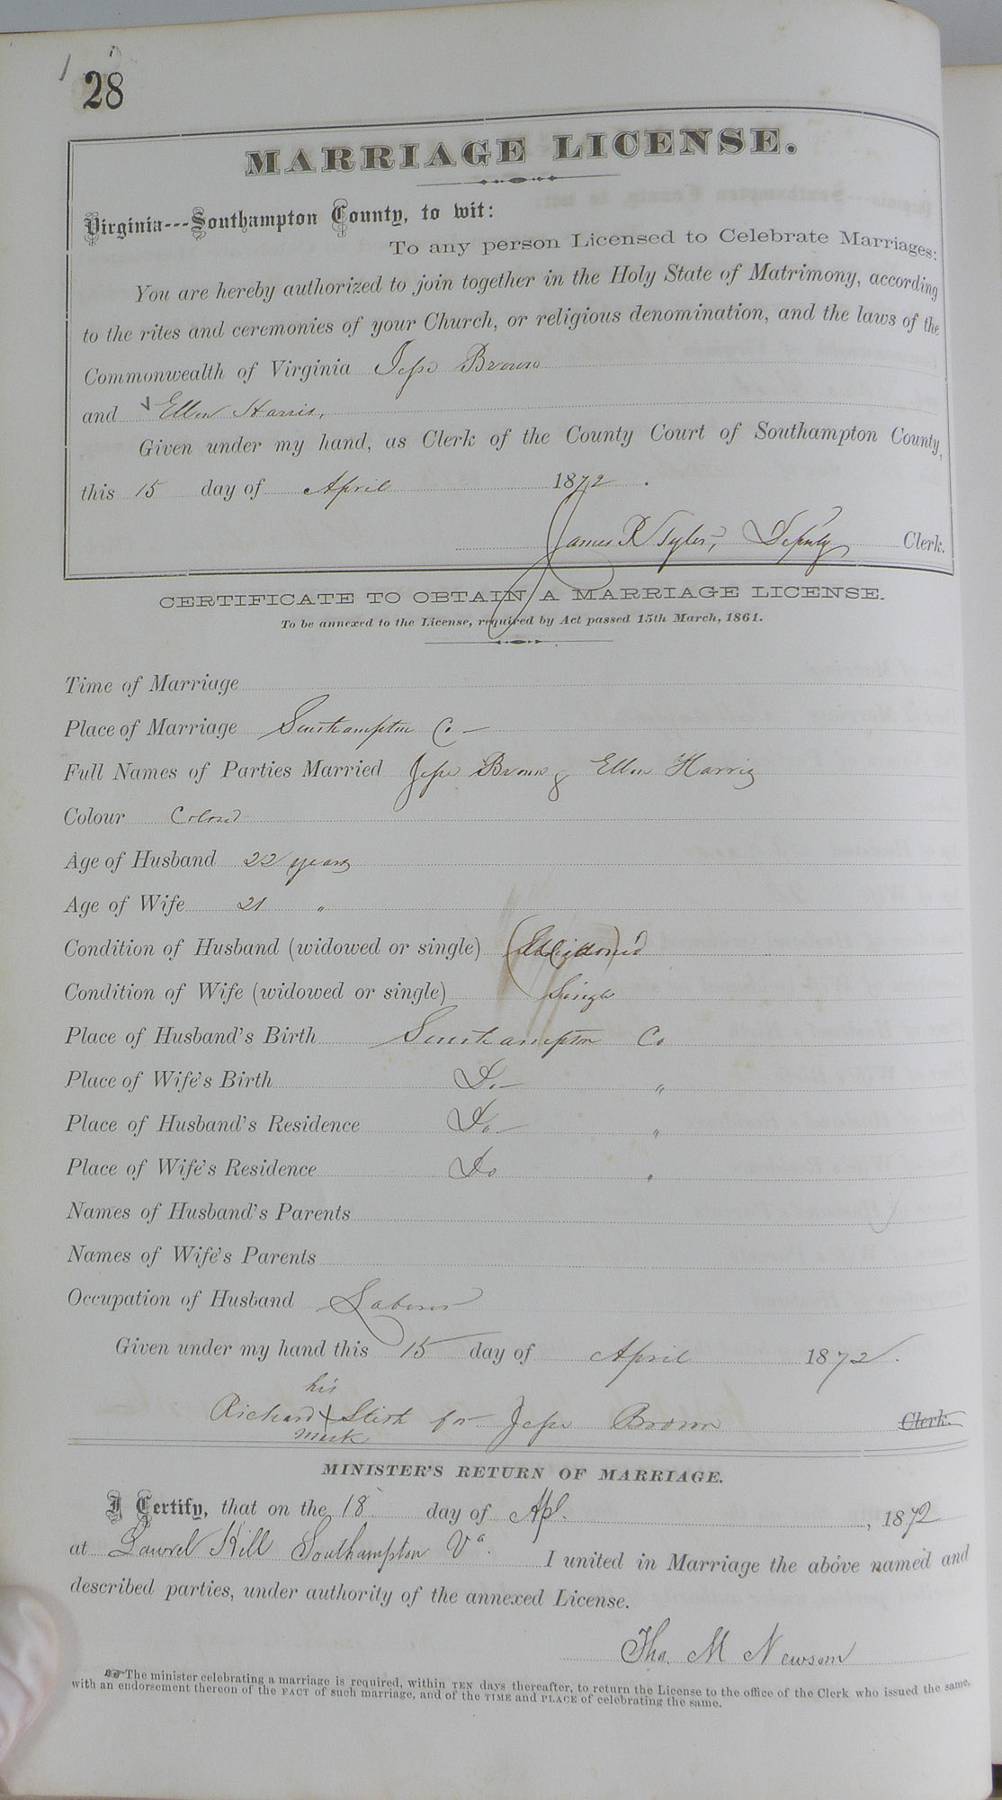 28
MARRIAGE LICENSE.
Virginia---Southampton County, to wit:
To any person Licensed to Celebrate Marriages:
You are hereby authorized to join together in the Holy State of Matrimony, according
to the rites and ceremonies of your Church, or religious denomination, and the laws of the
Commonwealth of Virginia Jesse Brown
and Ellen Harris,
Given under my hand, as Clerk of the County Court of Southampton County,
this 15 day of April 1872.
James R Tyler, Deputy Clerk.
CERTIFICATE TO OBTAIN A MARRIAGE LICENSE.
To be annexed to the License, required by Act passed 15th March, 1861.
Time of Marriage
Place of Marriage Southampton Co
Full Names of Parties Married Jesse Brown & Ellen Harris
Colour Colord
Age of Husband 22 years
Age of Wife 21 "
Condition of Husband (widowed or single)
Condition of Wife (widowed or single) Single
Place of Husband's Birth Southampton Co
Place of Wife's Birth Do "
Place of Husband's Residence Do "
Place of Wife's Residence Do "
Names of Husband's Parents
Names of Wife's Parents
Occupation of Husband Laborer
Given under my hand this 15 day of April 1872.
his
Richard X for Jesse Brown Clerk.
mark
MINISTER'S RETURN OF MARRIAGE.
I Certify, that on the 18 day of Apl. , 1872
at Laurel Hill Southampton Va. I united in Marriage the above named and
described parties, under authority of the annexed License.
Tho. M Newsom
The minister celebrating a marriage is required, within TEN days thereafter, to return the License to the office of the Clerk who issued the same,
with an endorsement thereon of the FACT of such marriage, and of the TIME and PLACE of celebrating the same.